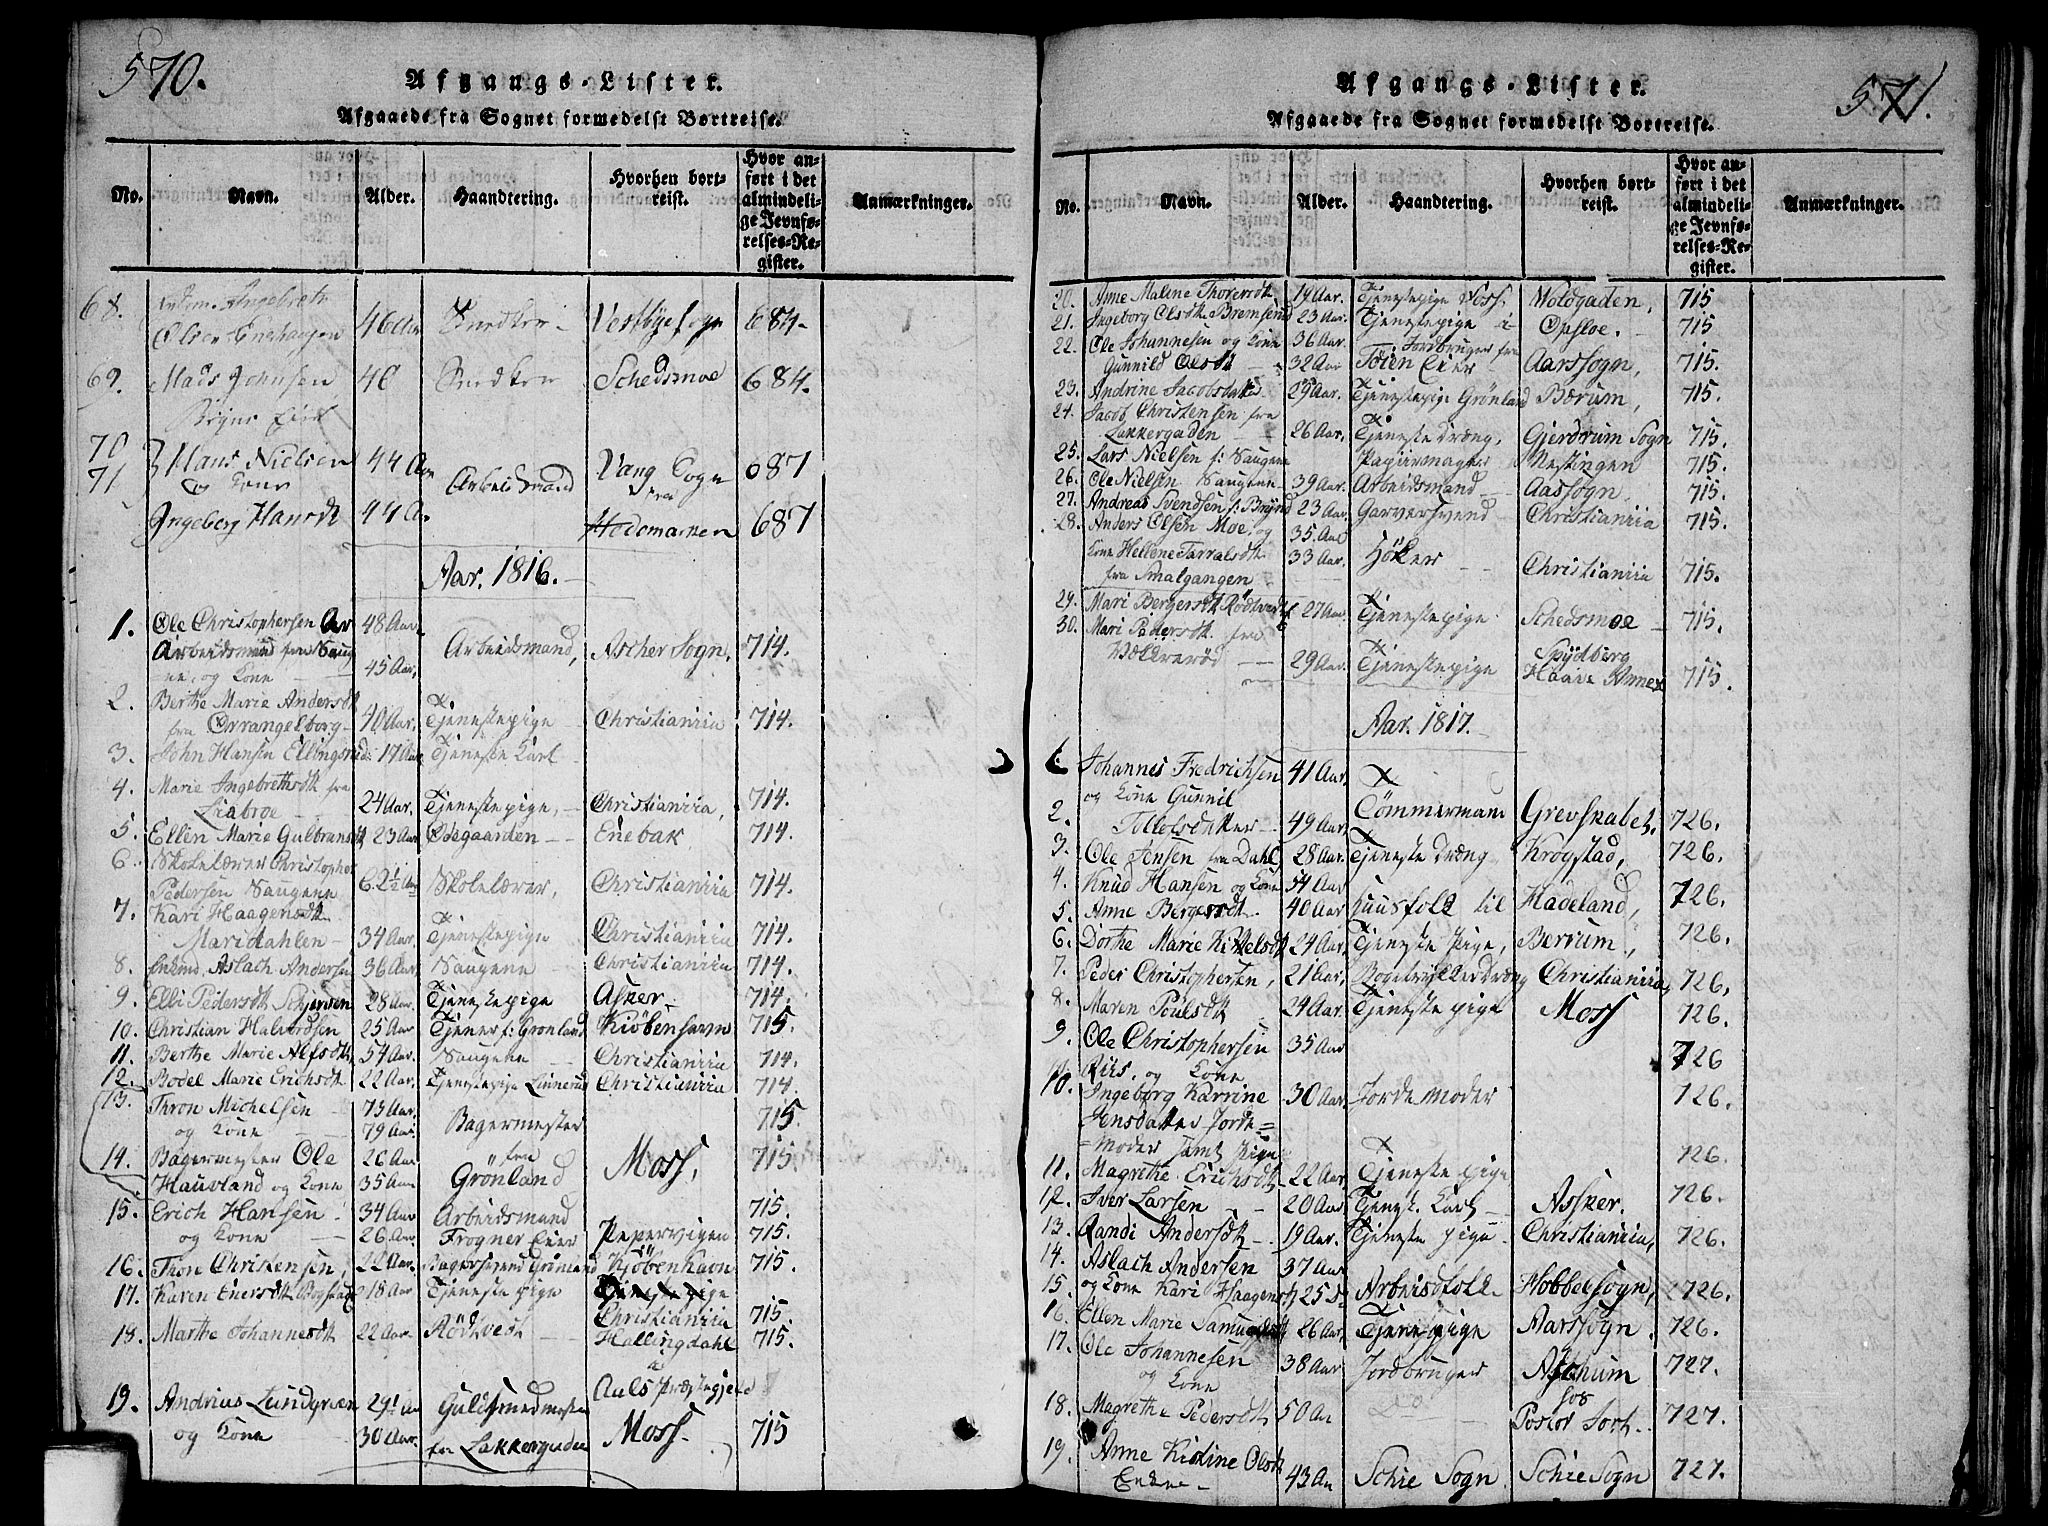 570.
Afgangs-Lister.
Afgaaede fra Sognet formedelst Bortreise.
No. Navn. Alder. Haandtering. Hvorhen bortreist. Hvor anført i det almindelige Jevnførelses-Register. Anmærkninger.
68. Ingebreth
Olsen 46 Aar Snedker Vestbye Sogn 684.
69. Mads Johnsen 40 Snedker Schedsmoe 684.
Eier
70 Hans Nielsen 44 Aar Arbeidsmand Vang Sogn 687
71 og Kone
Ingeborg Hansdt 44 A. Hedemarken 687
Aar. 1816.
1. Ole Christophersen 48 Aar
Arbeidsmand fra Saug-
ne, og Kone 45 Aar, Arbeidsmand, Ascher Sogn, 714.
2. Berthe Marie Andersdt
fra Orrangelborg 40 Aar, Tjenestepige Christiania 714.
3. John Hansen 17 Aar Tjeneste Karl
4. Marie Ingebrethsdt fra
Liabroe 24 Aar, Tjenestepige, Christiania, 714.
5. Ellen Marie Gulbransdt 23 Aar Ødegaarden Enebak 714.
6. Skolelærer Christopher
Pedersen Saugene 62½ Aar Skolelærer, Christiania 714.
7. Kari Haagensdt
Maridahlen 34 Aar. Tjenestepige Christiania 714.
8. Aslach Andersen 36 Aar. Saugene Christiania 714.
9. Elli Pedersdt 28 Aar. Tjenestepige Asker 714.
10. Christian Halvordsen 25 Aar Tjener f: Grønland Kiøbenhavn 715.
11. Berthe Marie Alfsdt, 54 Aar. Saugene Christiania 714.
12. Bodel Marie Erichsdt 22 Aar. Tjenestepige Linnerud Christiania 714.
13. Thron Michelsen 73 Aar. 715.
og Kone 79 Aar. Bagermester
14. Bagermester Ole 26 Aar fra Moss, 715
Hauvland og Kone 35 Aar Grønland
15. Erich Hansen 34 Aar Arbeidsmand 715.
og Kone 26 Aar Frogner Eier Pepervigen 715.
16. Thore Christensen, 22 Aar. Bagersvend Grønland Kjøbenhavn 715.
17. Karen Enersdt Bogstad 18 Aar Tjeneste pige Tjenestepige
Christiania 715.
18. Marthe Johannesdt 22 Aar. Rødtvedt Hallingdahl 715.
Aals Præstegjeld
19. Andrius Lundgreen 29½ Aar Guldsmedmester
og Kone 30 Aar. fra Lakkergaden Moss. 715
571.
Afgangs-Lister.
Afgaaede fra Sognet formedelst Bortreise.
No. Navn. Alder. Haandtering. Hvorhen bortreist. Hvor anført i det almindelige Jevnførelses-Register. Anmærkninger.
20. Anne Malene Thoresdt 19 Aar. Tjenestepige Voldgaden, 715
21. Ingeborg Olsdt 23 Aar. Tjenestepige i Opsloe. 715
22. Ole Johannesen og Kone 36 Aar. Jordbruger fra
Gunnild Olsdt 32 Aar Tøien Eier Aarssogn, 715.
23. Andrine Jacobsdatter 29 Aar. Tjenestepige Grønland Bærum, 715.
24. Jacob Christensen fra
Lakkergaden 26 Aar, Tjeneste dræng, Gjerdrum Sogn 715.
25. Lars Nielsen f: Saugene Papiirmager 715.
26. Ole Nielsen Saugene 39 Aar. Arbeidsmand Aassogn. 715.
27. Andreas Svendsen f: 23 Aar. Garversvend Christiania 715.
28. Anders Olsen Moe, og 35 Aar
Kone Hellene Tarralsdt 33 Aar. Høker Christiania 715.
fra Smalgangen
29. Mari Bergersdt Rødtvedt 27 Aar Tjenestepige Schedsmoe 715.
30. Mari Pedersdt fra
29 Aar. Tjenestepige Spydberg
Annex 715.
Aar. 1817.
1. Johannes Fredrichsen 41 Aar,
og Kone Gunnil
2. Tollofsdatter 49 Aar Tømmermand Grevskabet. 726.
3. Ole Jensen fra Dahl, 28 Aar. Tjeneste dræng Krogstad, 726.
4. Knud Hansen og Kone 54 Aar
5. Anne Bergersdt. 40 Aar huusfolk til Hadeland, 726.
6. Dorthe Marie Kittelsdt 24 Aar Tjeneste pige, Berrum, 726.
7. Peder Christophersen, 21 Aar, Christiania, 726,
8. Maren Poulsdt 24 Aar. Tjeneste pige Moss 726.
9. Ole Christophersen 35 Aar 726
Riis, og Kone
10. Ingeborg Karrine 30 Aar. Jorde moder 726.
Jensdatter Jorde=
=moder samt Pige 726.
11. Magrethe Erichsdt 22 Aar. Tjeneste pige
12. Iver Larsen 20 Aar Tjenest. Karl Assker. 726.
13. Randi Andersdt 19 Aar. Tjeneste pige Christiania, 726.
14. Aslach Andersen 37 Aar
15. og Kone Kari Haagensdt 25 Arbeidsfolk Hobbelsogn, 726.
16. Ellen Marie Samuelsdt 26 Aar. Tjenestepige Aarssogn. 726.
17. Ole Johannesen 38 Aar Jordbruger 727.
og Kone hos
18. Magrethe Pedersdt 50 Aar Do Pastor 727.
19. Anne Kirstine Olsdt
Enke 43 Aar Schie Sogn Schie Sogn 727.